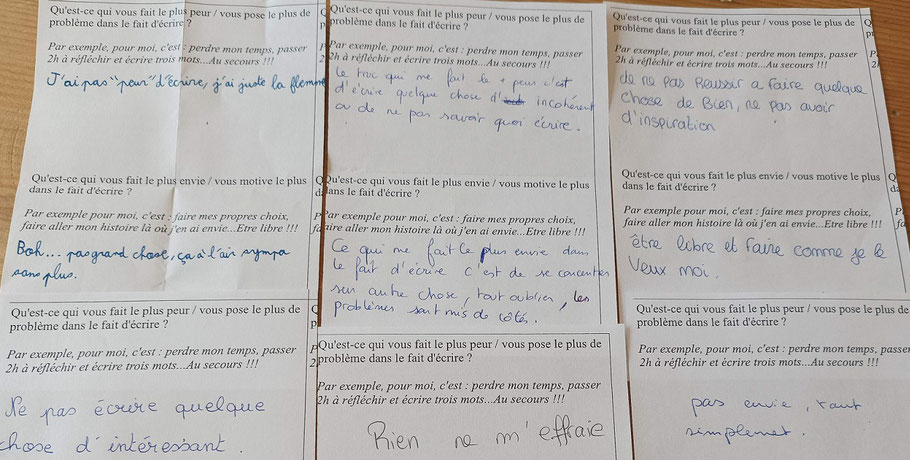 Qu'est-ce qui vous fait le plus peur / vous pose le plus de
problème dans le fait d'écrire ?
Par exemple, pour moi, c'est : perdre mon temps, passer
2h à réfléchir et écrire trois mots...Au secours !!!
J'ai pas "peur" d'écrire, j'ai juste la flemme
Qu'est-ce qui vous fait le plus envie / vous motive le plus
dans le fait d'écrire ?
Par exemple pour moi, c'est : faire mes propres choix,
faire aller mon histoire là où j'en ai envie...Etre libre !!!
Boh... pas grand chose, ça à l'air sympa
sans plus.
Qu'est-ce qui vous fait le plus peur / vous pose le plus de
problème dans le fait d'écrire ?
Par exemple, pour moi, c'est : perdre mon temps, passer
2h à réfléchir et écrire trois mots...Au secours !!!
le truc qui me fait le + peur c'est
d'écrire quelque chose d' incohérent
ou de ne pas savoir quoi écrire.
Qu'est-ce qui vous fait le plus envie / vous motive le plus
dans le fait d'écrire ?
Par exemple pour moi, c'est : faire mes propres choix,
faire aller mon histoire là où j'en ai envie...Etre libre !!!
Ce qui me fait le plus envie dans
le fait d'écrire c'est de se concentrer
sur autre chose, tout oublier, les
problèmes sont mis de côtés.
Qu'est-ce qui vous fait le plus peur / vous pose le plus de
problème dans le fait d'écrire ?
Par exemple, pour moi, c'est : perdre mon temps, passer
2h à réfléchir et écrire trois mots...Au secours !!!
de ne pas Reussir a faire quelque
chose de Bien, ne pas avoir
d'inspiration
Qu'est-ce qui vous fait le plus envie / vous motive le plus
dans le fait d'écrire ?
Par exemple pour moi, c'est : faire mes propres choix,
faire aller mon histoire là où j'en ai envie...Etre libre !!!
être libre et Faire comme je le
Veux moi.
Qu'est-ce qui vous fait le plus peur / vous pose le plus de
problème dans le fait d'écrire ?
Par exemple, pour moi, c'est : perdre mon temps, passer
2h à réfléchir et écrire trois mots...Au secours !!!
Ne pas écrire quelque
chose d'intéressant.
Qu'est-ce qui vous fait le plus peur / vous pose le plus de
problème dans le fait d'écrire ?
Par exemple, pour moi, c'est : perdre mon temps, passer
2h à réfléchir et écrire trois mots...Au secours !!!
Rien ne m'effraie
Qu'est-ce qui vous fait le plus peur / vous pose le plus de
problème dans le fait d'écrire ?
Par exemple, pour moi, c'est : perdre mon temps, passer
2h à réfléchir et écrire trois mots...Au secours !!!
pas envie, tout
simplemet.